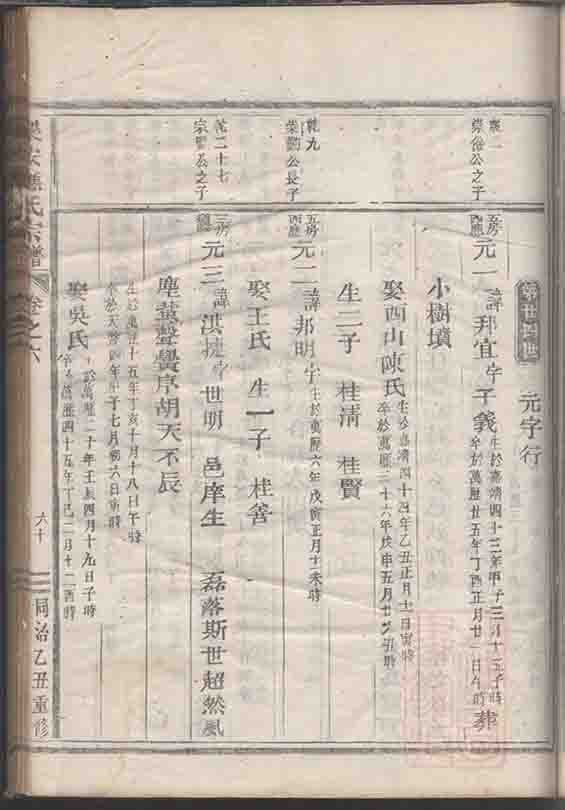 第廿四世
元字行
榮俗公之子
五房
元一
諱
邦宜
字
子義
生於嘉靖四十三年甲子三月十五子時
卒於萬曆廿五年丁酉正月廿一日午時
葬
小樹墳
娶西山陳氏
生於嘉靖四十四年乙丑正月十一日寅時
生二子 桂清 桂賢
乾九
公長子
五房
元二
諱
邦明
字
生於萬曆六年戊寅正月十一未時
娶王氏 生一子 桂善
第二十七
公之子
三房
元三
諱
洪捷
字
世明 邑庠生 磊落斯世超然風
塵蜚聲黌序胡天不辰
生於萬曆十五年丁亥十月十八日午時
卒於天啓四年甲子七月初六日寅時
娶吳氏
生於萬曆二十年壬辰四月十九日子時
卒於萬曆四十五年丁巳二月十二酉時
氏宗譜
卷之六
六十
同治乙丑重修